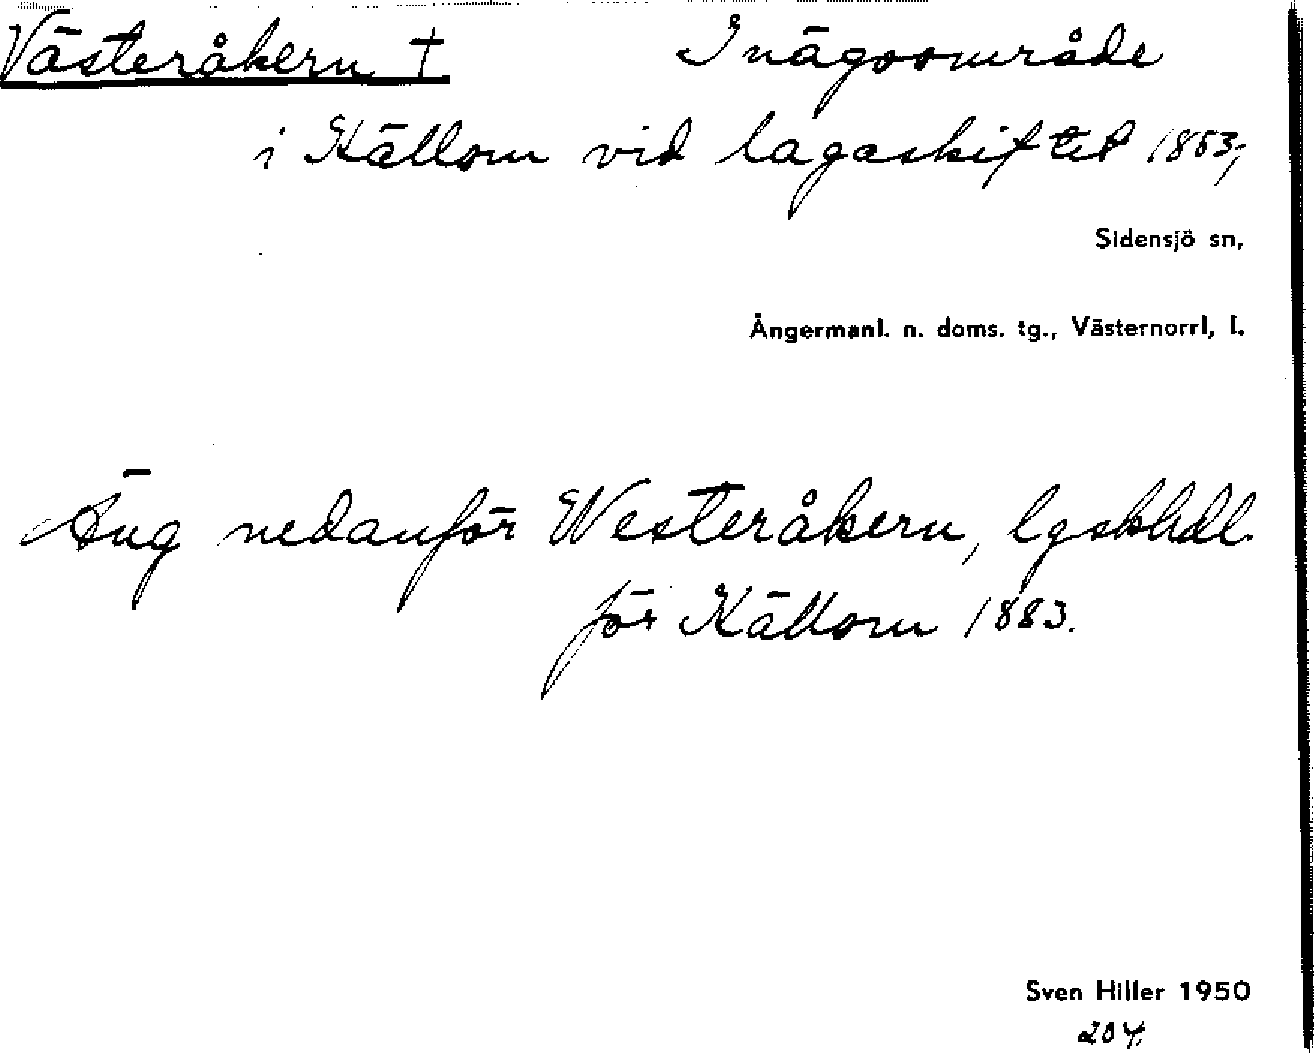 Västeråkern † Inägoområde
i Källom vid lagaskiftet 1883;
Sidensjö sn,
Ångermanl. n. doms. tg., Västernorrl, l.
Äng nedanför Westeråkern, lgskhdl.
för Källom 1883.
Sven Hiller 1950
204.